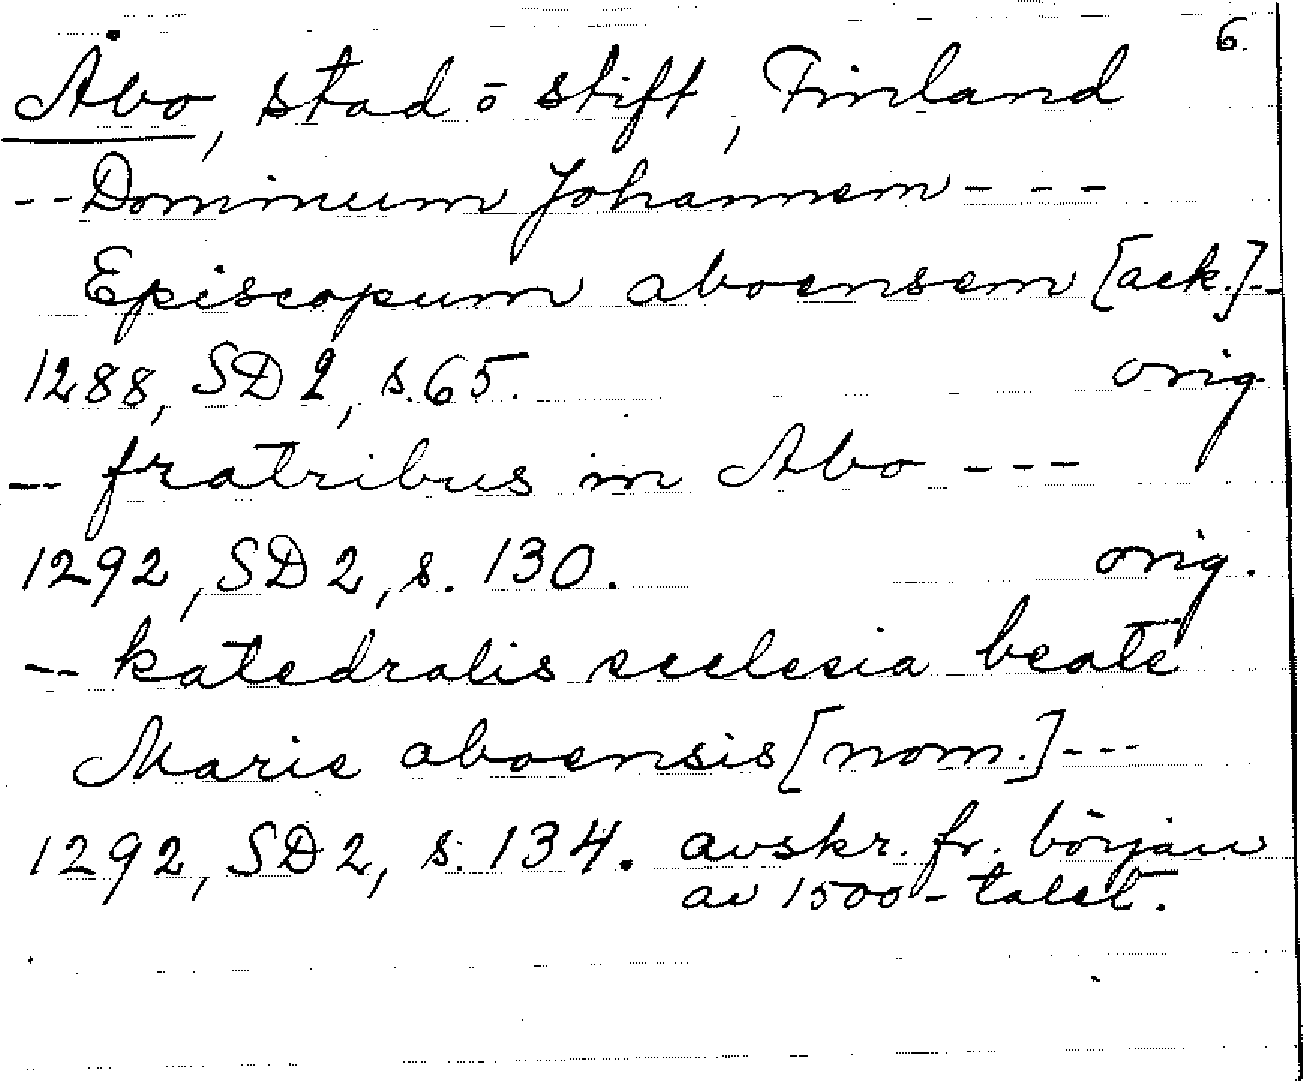 6.
Åbo, stad o stift, Finland
-- Dominum Johannem - - -
Episcopum aboensem [ack.] --
1288, SD 2, s. 65. orig
-- fratribus in Abo - - -
1292, SD 2, s. 130. orig.
-- katedralis ecclesia beate
Marie aboensis [nom.] - - -
1292, SD 2, s. 134. avskr. fr. början
av 1500-talet.